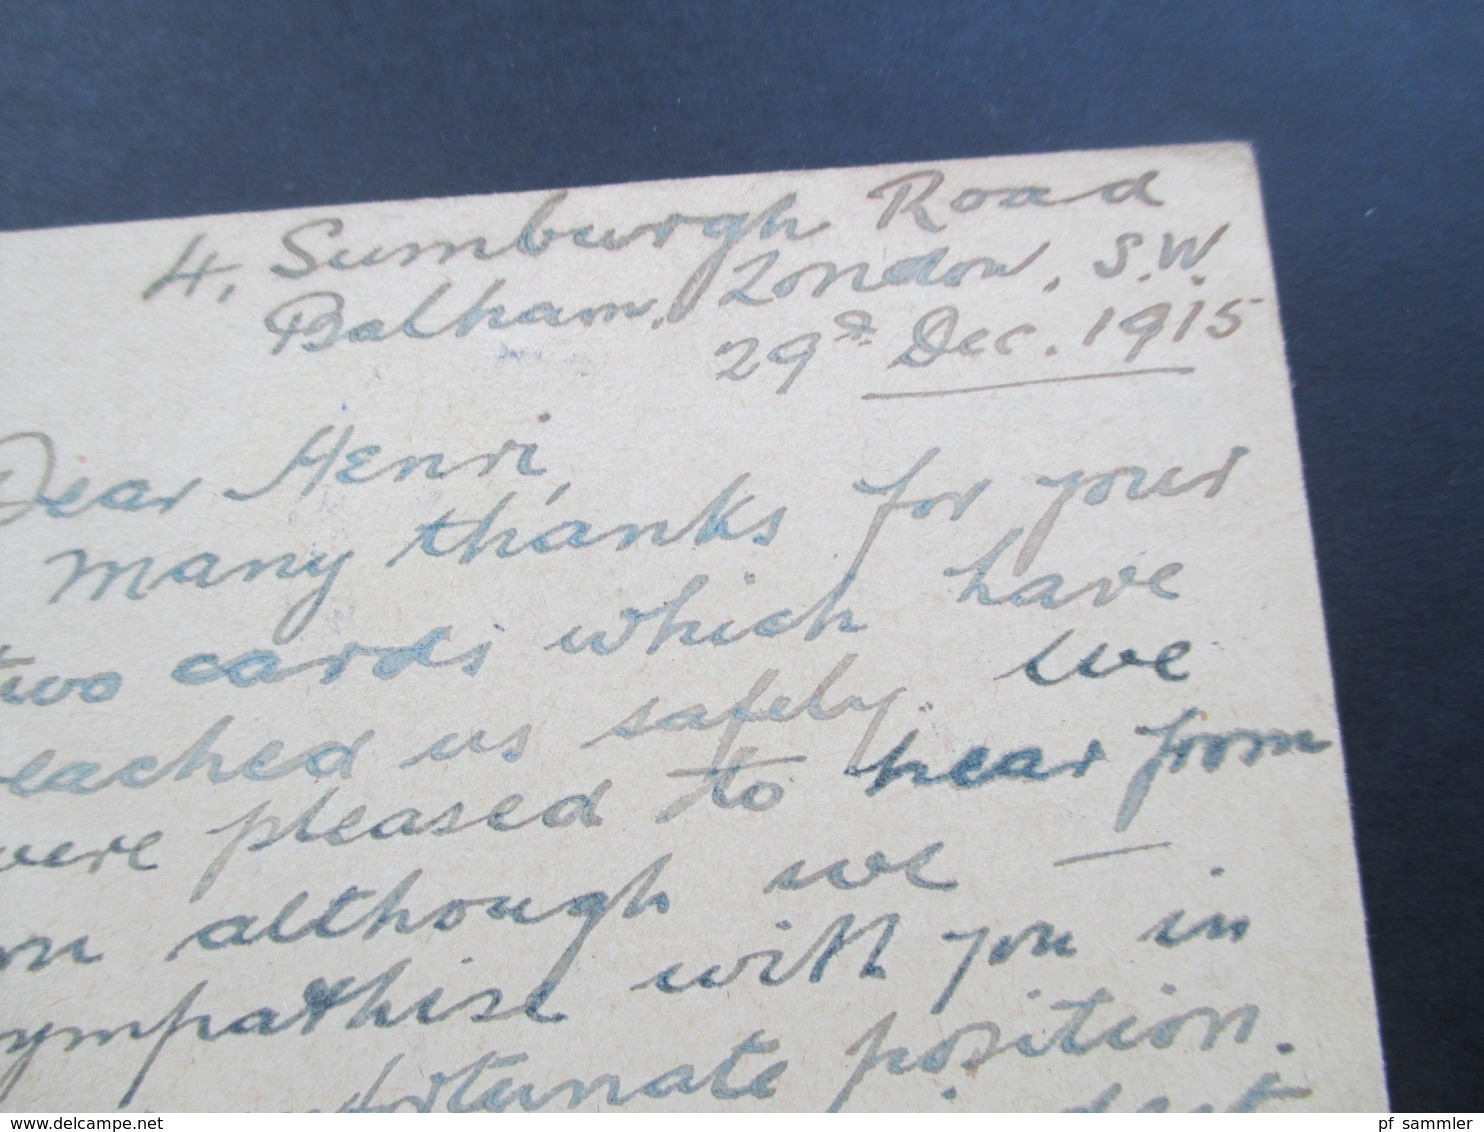 4, Sumburgh Road
Balham, London, S.W.
29th Dec. 1915
Dear Henri,
Many thanks for your
two cards which have
reached us safely. We
were pleased to hear from
you although we
sympathise with you in
unfortunate position.
pf sammler
delcampe.net